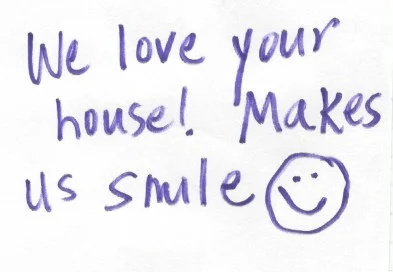 We love your
house! Makes
us smile